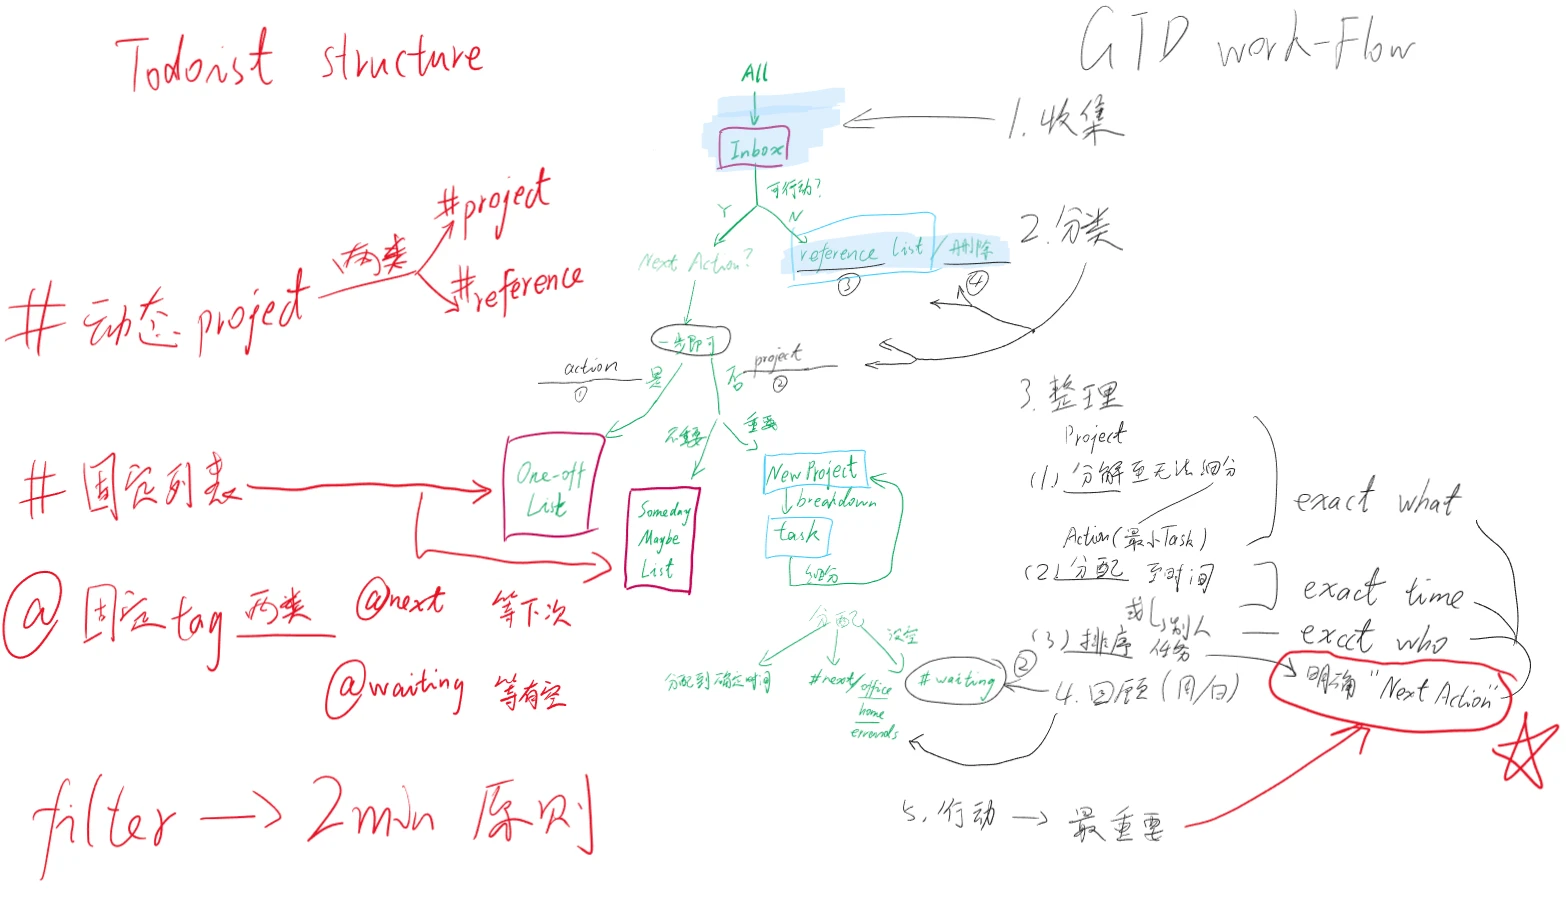 Todoist structure
# 动态 project
两类
#project
#reference
# 固定列表
@ 固定 tag 两类
@next 等下次
@waiting 等有空
filter → 2min 原则
All
Inbox
可行动?
Y
N
Next Action?
reference List / 删除
③
④
一步即可
action
①
是
否
project
②
不重要
重要
One-off
List
Someday
Maybe
List
New Project
breakdown
task
细分
分配
没空
分配到确定时间
#next/office
home
errands
#waiting
②
GTD work-Flow
1. 收集
2. 分类
3. 整理
Project
(1) 分解至无法细分
Action(最小Task)
(2) 分配 至时间
或 别人
(3) 排序 任务
exact what
exact time
excct who
明确 "Next Action"
4. 回顾 (周/日)
5. 行动 → 最重要